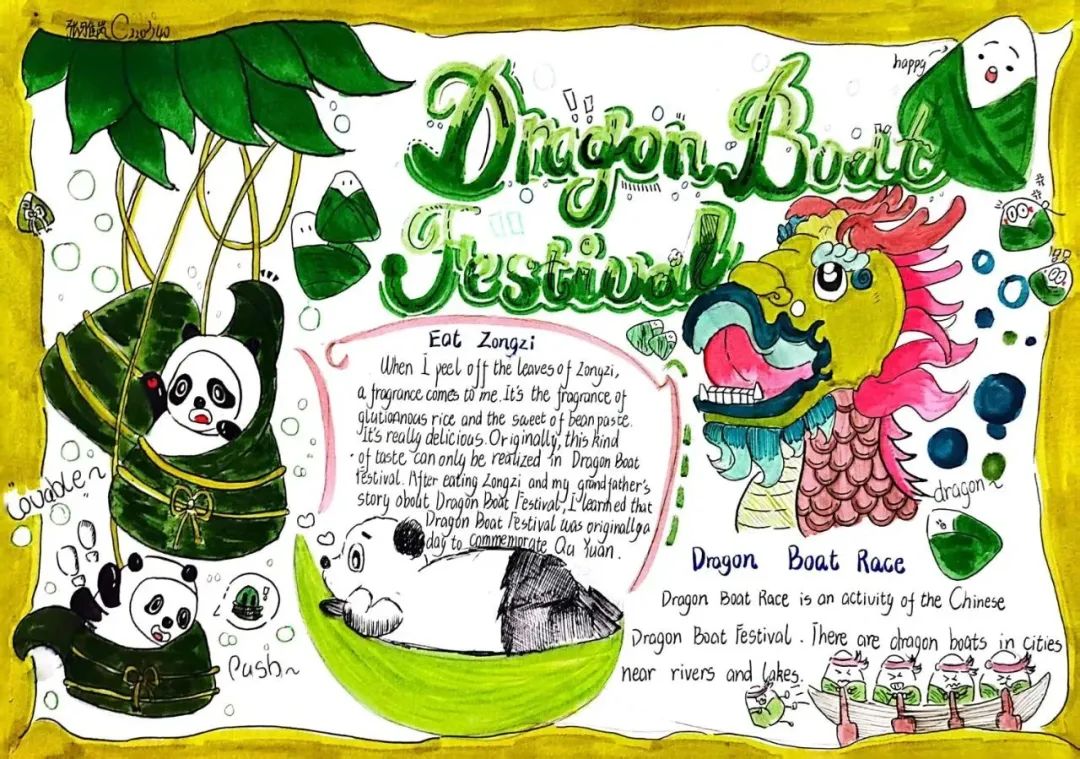 张雅岚
Dragon Boat
Festival
happy
Eat Zongzi
When I peel off the leaves of Zongzi,
a fragrance comes to me. It's the fragrance of
glutiannous rice and the sweet of bean paste.
It's really delicious. Originally, this kind
of taste can only be realized in Dragon Boat
festival. After eating Zongzi and my grandfather's
story obout Dragon Boat Festival, I learned that
Dragon Boat Festival was originally a
day to commemorate Qu Yuan.
Lovable~
Push~
dragon~
Dragon Boat Race
Dragon Boat Race is an activity of the Chinese
Dragon Boat Festival. There are dragon boats in cities
near rivers and lakes.